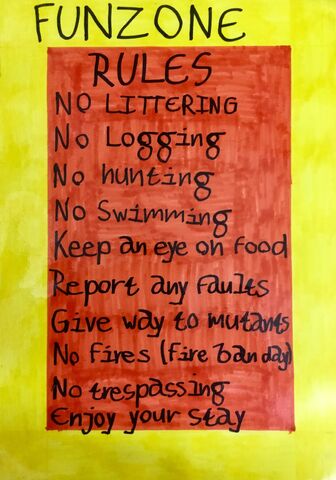 FUNZONE
RULES
NO LITTERING
No Logging
No hunting
No Swimming
Keep an eye on food
Report any faults
Give way to mutants
No fires (fire ban day)
No trespassing
Enjoy your stay